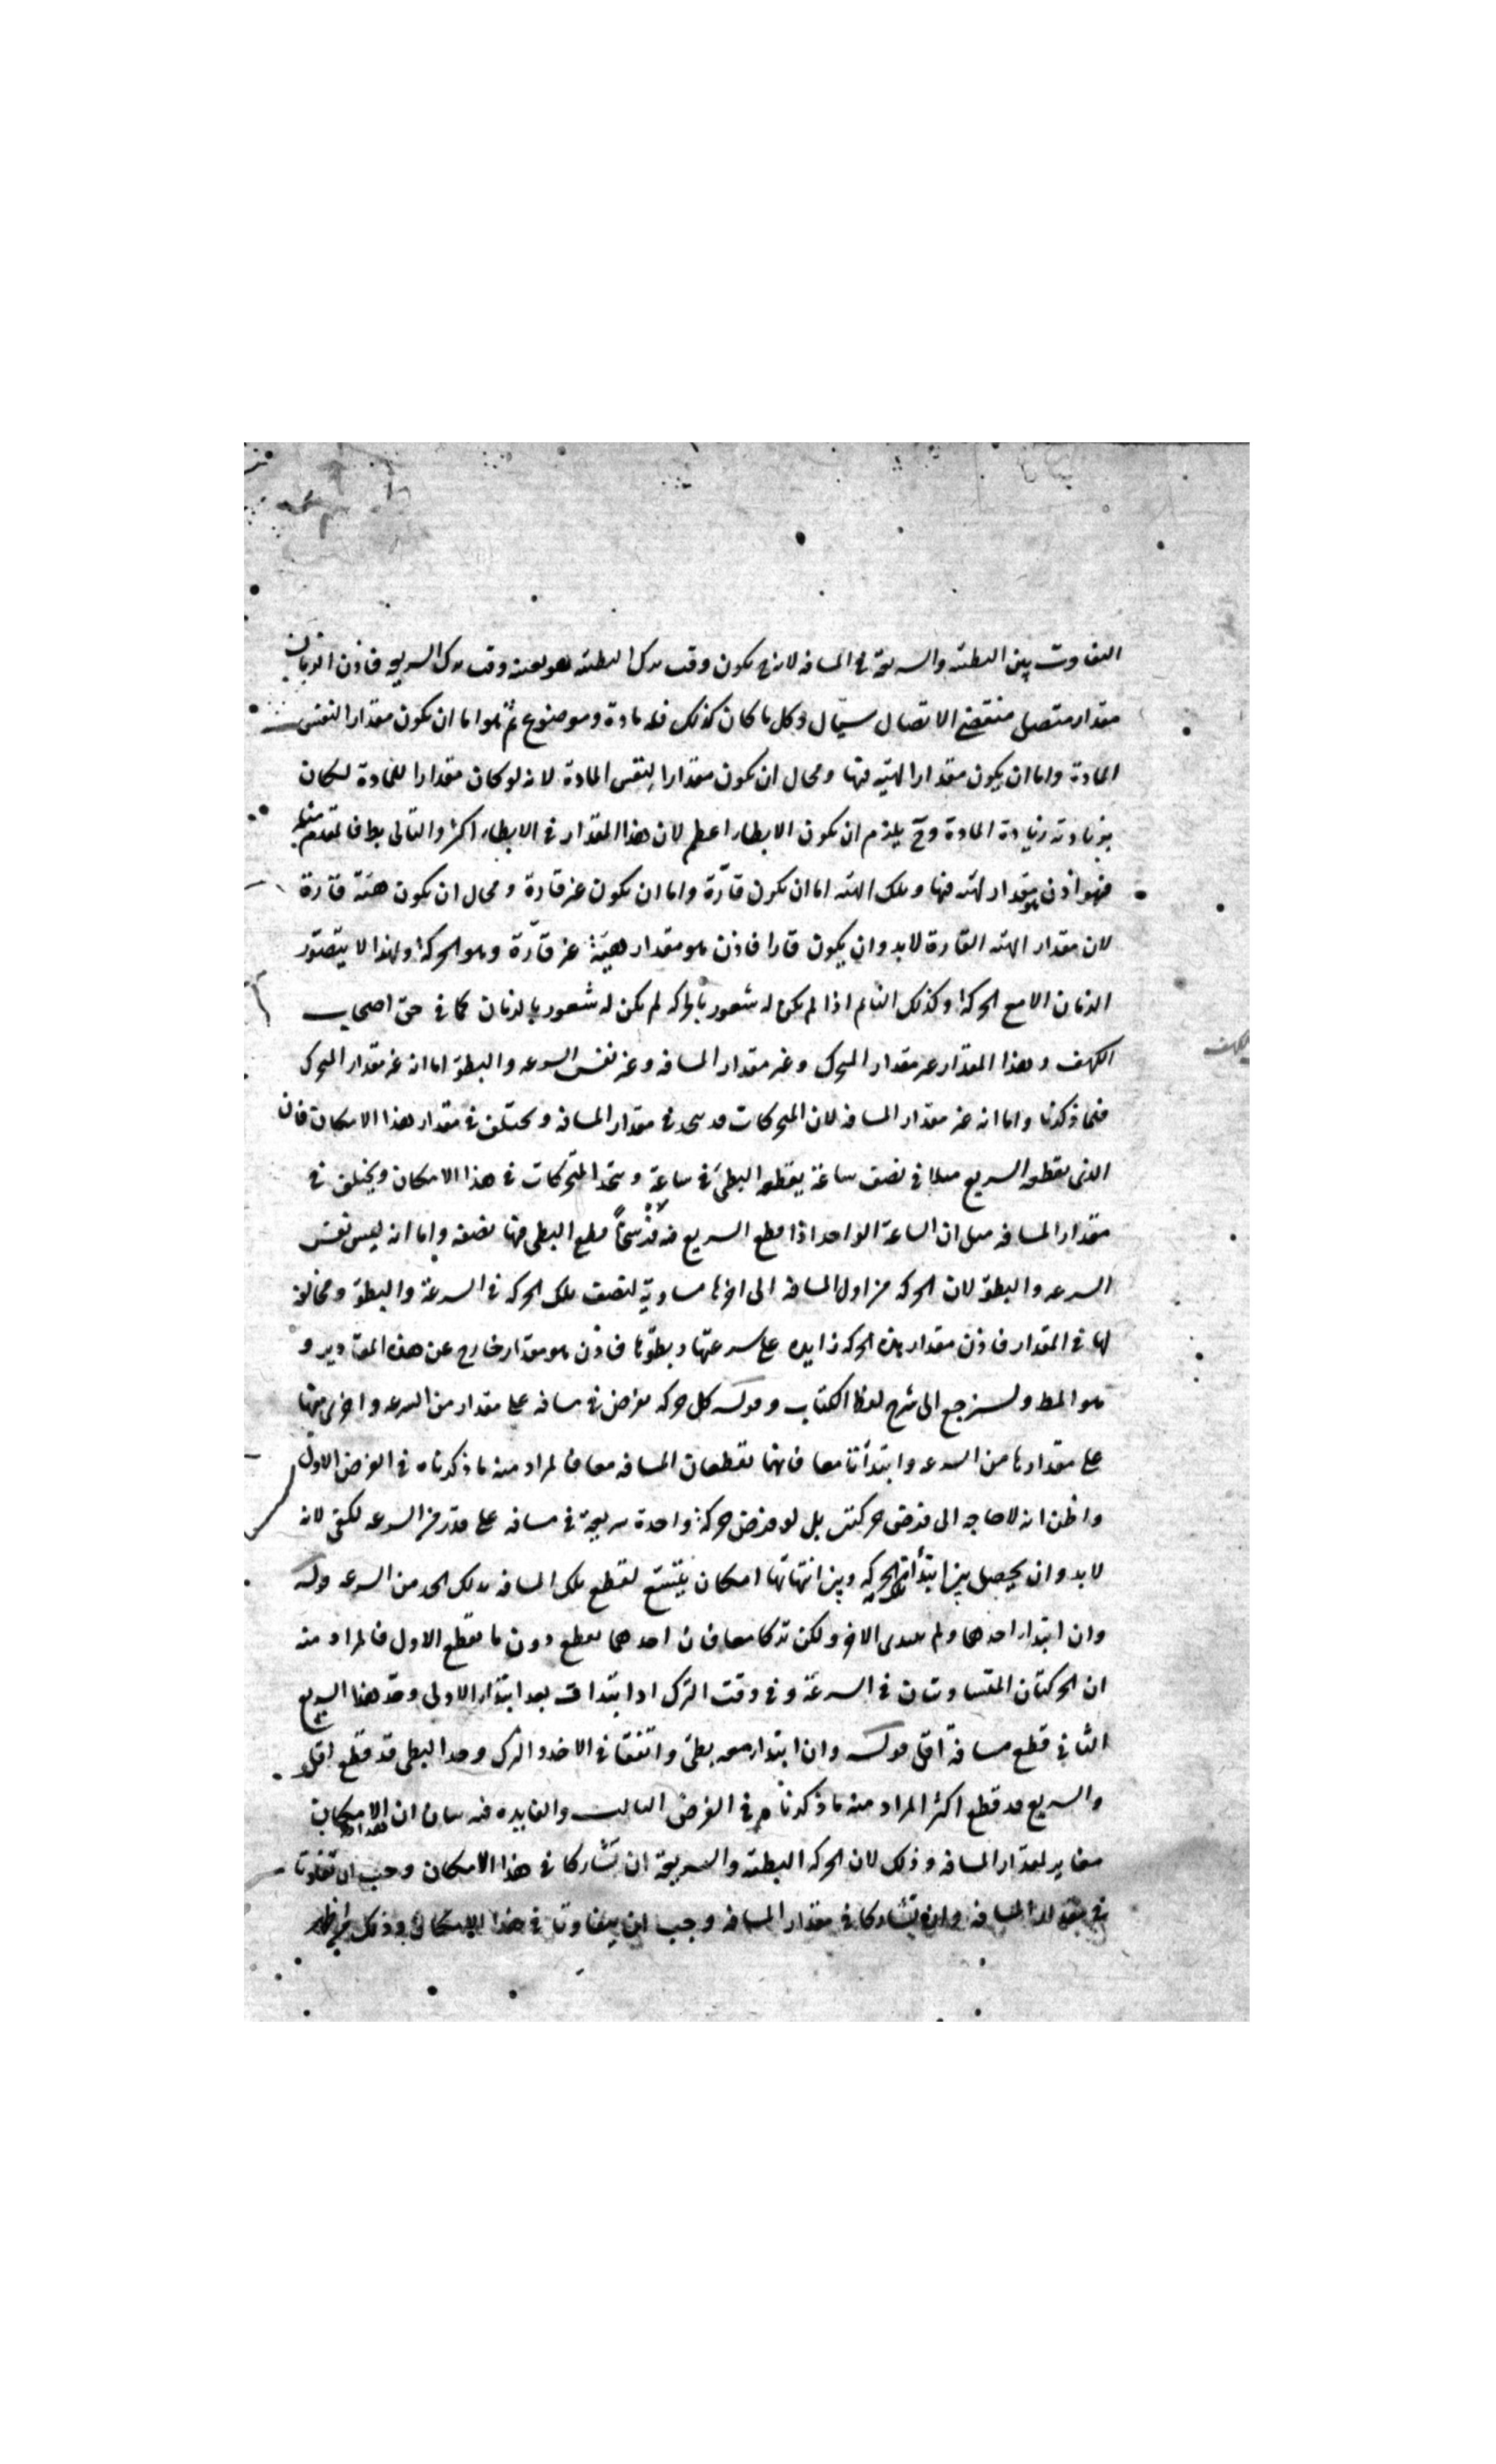 التفاوت بين البطئه والسريعة في المسافه لانه ح يكون وقت ترك البطئه هو بعينه وقت ترك السريع فاذن الزمان
مقدار متصل منقضى الاتصال سيّال وكل ما كان كذلك فله مادة وموضوع ثم هو اما ان يكون مقدارا لنفس
المادة واما ان يكون مقدارا لهيه فيها ومحال ان يكون مقدارا لنفس المادة لانه لو كان مقدارا للمادة لكان
بزيادته زيادة المادة وح يلزم ان يكون الابطاء اعظم لان هذا المقدار في الابطاء اكثر والتالى بط فالمقدم مثله
فهو اذن مقدار لهيه فيها وتلك الهيه اما ان تكون قارّة واما ان يكون غير قارة ومحال ان يكون هيئة قارّة
لان مقدار الهيه القارة لابد وان يكون قارا فاذن هو مقدار هيئة غير قارّة وهو الحركة ولهذا لا يتصوّر
الزمان الا مع الحركة وكذلك النائم اذا لم يكن له شعور بالحركه لم يكن له شعور بالزمان كما في حق اصحاب
الكهف وهذا المقدار غير مقدار المتحرك وغير مقدار المسافه وغير نفس السرعه والبطؤ اما انه غير مقدار المتحرك
فلما ذكرنا واما انه غير مقدار المسافه لان المتحركات قد تتحد في مقدار المسافه وتختلف في مقدار هذا الامكان فان
الذى يقطعه السريع مثلا في نصف ساعة يقطعه البطئ في ساعة وتتحد المتحركات في هذا الامكان ويختلف في
مقدار المسافه مثل ان الساعة الواحد اذا قطع السريع فيه فرسخاً قطع البطى فيها نصفه واما انه ليس نفس
السرعه والبطؤ لان الحركه من اول المسافه الى اخرها مساوية لنصف تلك الحركه في السرعة والبطؤ ومخالفة
لها في المقدار فاذن مقدار هذه الحركه زايده على سرعتها وبطؤها فاذن هو مقدار خارج عن هذه المقادير و
هو المط ولنرجع الى شرح لفظ الكتاب وقوله كل حركه تفرض في مسافه على مقدار من السرعه واخرى معها
على مقدارها من السرعه وابتدأتا معا فانهما تقطعان المسافه معا فالمراد منه ما ذكرناه في الفرض الاول
واظن انه لا حاجه الى فرض حركتين بل لو فرض حركة واحدة سريعة في مسافه على قدر من السرعه لكفى لانه
لابد وان يحصل بين ابتدأ الحركه وبين انتهائها امكان يتسع لقطع تلك المسافه بذلك الحد من السرعه قوله
وان ابتدا احدهما ولم يبتدى الاخر ولكن تركا معا فان احدهما يقطع دون ما يقطع الاول فالمراد منه
ان الحركتان المتساويتان في السرعة وفي وقت الترك اذا ابتدات بعد ابتدا الاولى وجد هذا السريع
الثانى قطع مسافة اقل قوله وان ابتدا معه بطئ واتفقا في الاخذ والترك وجد البطى قد قطع اقل
والسريع قد قطع اكثر المراد منه ما ذكرنا في الفرض الثالث والفايده فيه بيان ان الامكان
مغاير لمقدار المسافه وذلك لان الحركه البطئه والسريعة ان تشاركا في هذا الامكان وجب ان تتفاوتا
في مقدار المسافه وان تشاركا في مقدار المسافه وجب ان يتفاوتا في هذا الامكان وذلك